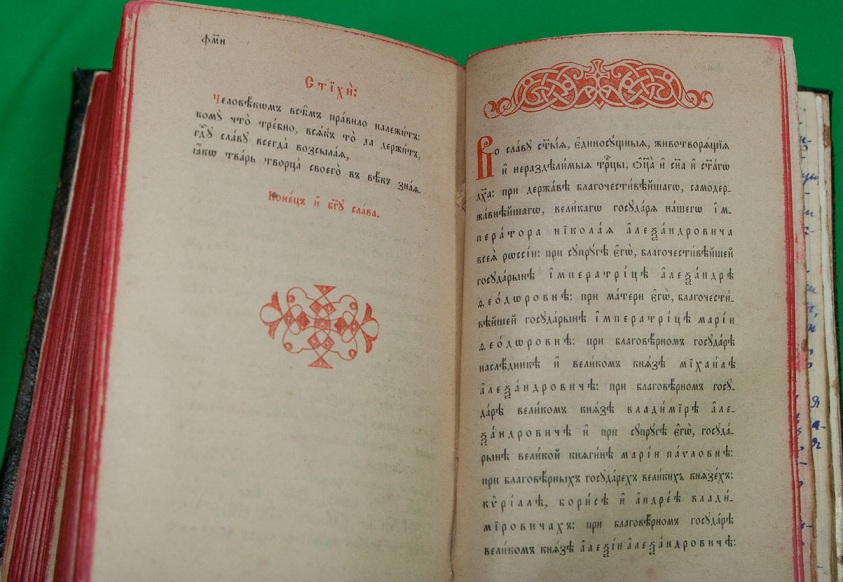 фм҃и
Стїхѝ:
Человѣ́кѡмъ всѣ̑мъ пра́вило належи́тъ:
комꙋ̀ что̀ тре́бно, всѧ́къ то̀ да держи́тъ,
гдⷭ҇ꙋ сла́вꙋ всегда̀ возсыла́ѧ,
ꙗ҆́кѡ тва́рь творца̀ своего̀ въ вѣ́къ зна́ѧ.
Коне́цъ и҆ бг҃ꙋ сла́ва.
Во сла́вꙋ ст҃ы́ѧ, є҆диносꙋ́щныѧ, животворѧ́щїѧ
и҆ нераздѣли́мыѧ трⷪ҇цы, ѻ҆ц҃а̀ и҆ сн҃а и҆ ст҃а́гѡ
дх҃а: при держа́вѣ благочести́вѣйшагѡ, самодер-
жа́внѣйшагѡ, вели́кагѡ госꙋдарѧ̀ на́шегѡ і҆м-
пера́тора нїкола́ѧ а҆леѯа́ндровича
всеѧ̀ рѡссі́и: при сꙋпрꙋ́гѣ є҆гѡ̀, благочести́вѣйшей
госꙋда́рынѣ і҆мператрі́цѣ а҆леѯа́ндрѣ
ѳео́дѡровнѣ: при ма́тери є҆гѡ̀, благочести́-
вѣйшей госꙋда́рынѣ і҆мператрі́цѣ марі́и
ѳео́дѡровнѣ: при благовѣ́рномъ госꙋда́рѣ
наслѣ́дникѣ и҆ вели́комъ кнѧ́зѣ мїхаи́лѣ
а҆леѯа́ндровичѣ: при благовѣ́рномъ госꙋ-
да́рѣ вели́комъ кнѧ́зѣ влади́мїрѣ а҆ле-
ѯа́ндровичѣ и҆ при сꙋпрꙋ́гѣ є҆гѡ̀, госꙋда́-
рынѣ вели́кой кнѧги́нѣ марі́и па́ѵловнѣ:
при благовѣ́рныхъ госꙋда́рехъ вели́кихъ кнѧзе́хъ:
кѷрі́ллѣ, бори́сѣ и҆ а҆ндре́ѣ влади́-
мїровичахъ: при благовѣ́рномъ госꙋда́рѣ
вели́комъ кнѧ́зѣ а҆леѯі́и а҆леѯа́ндровичѣ: